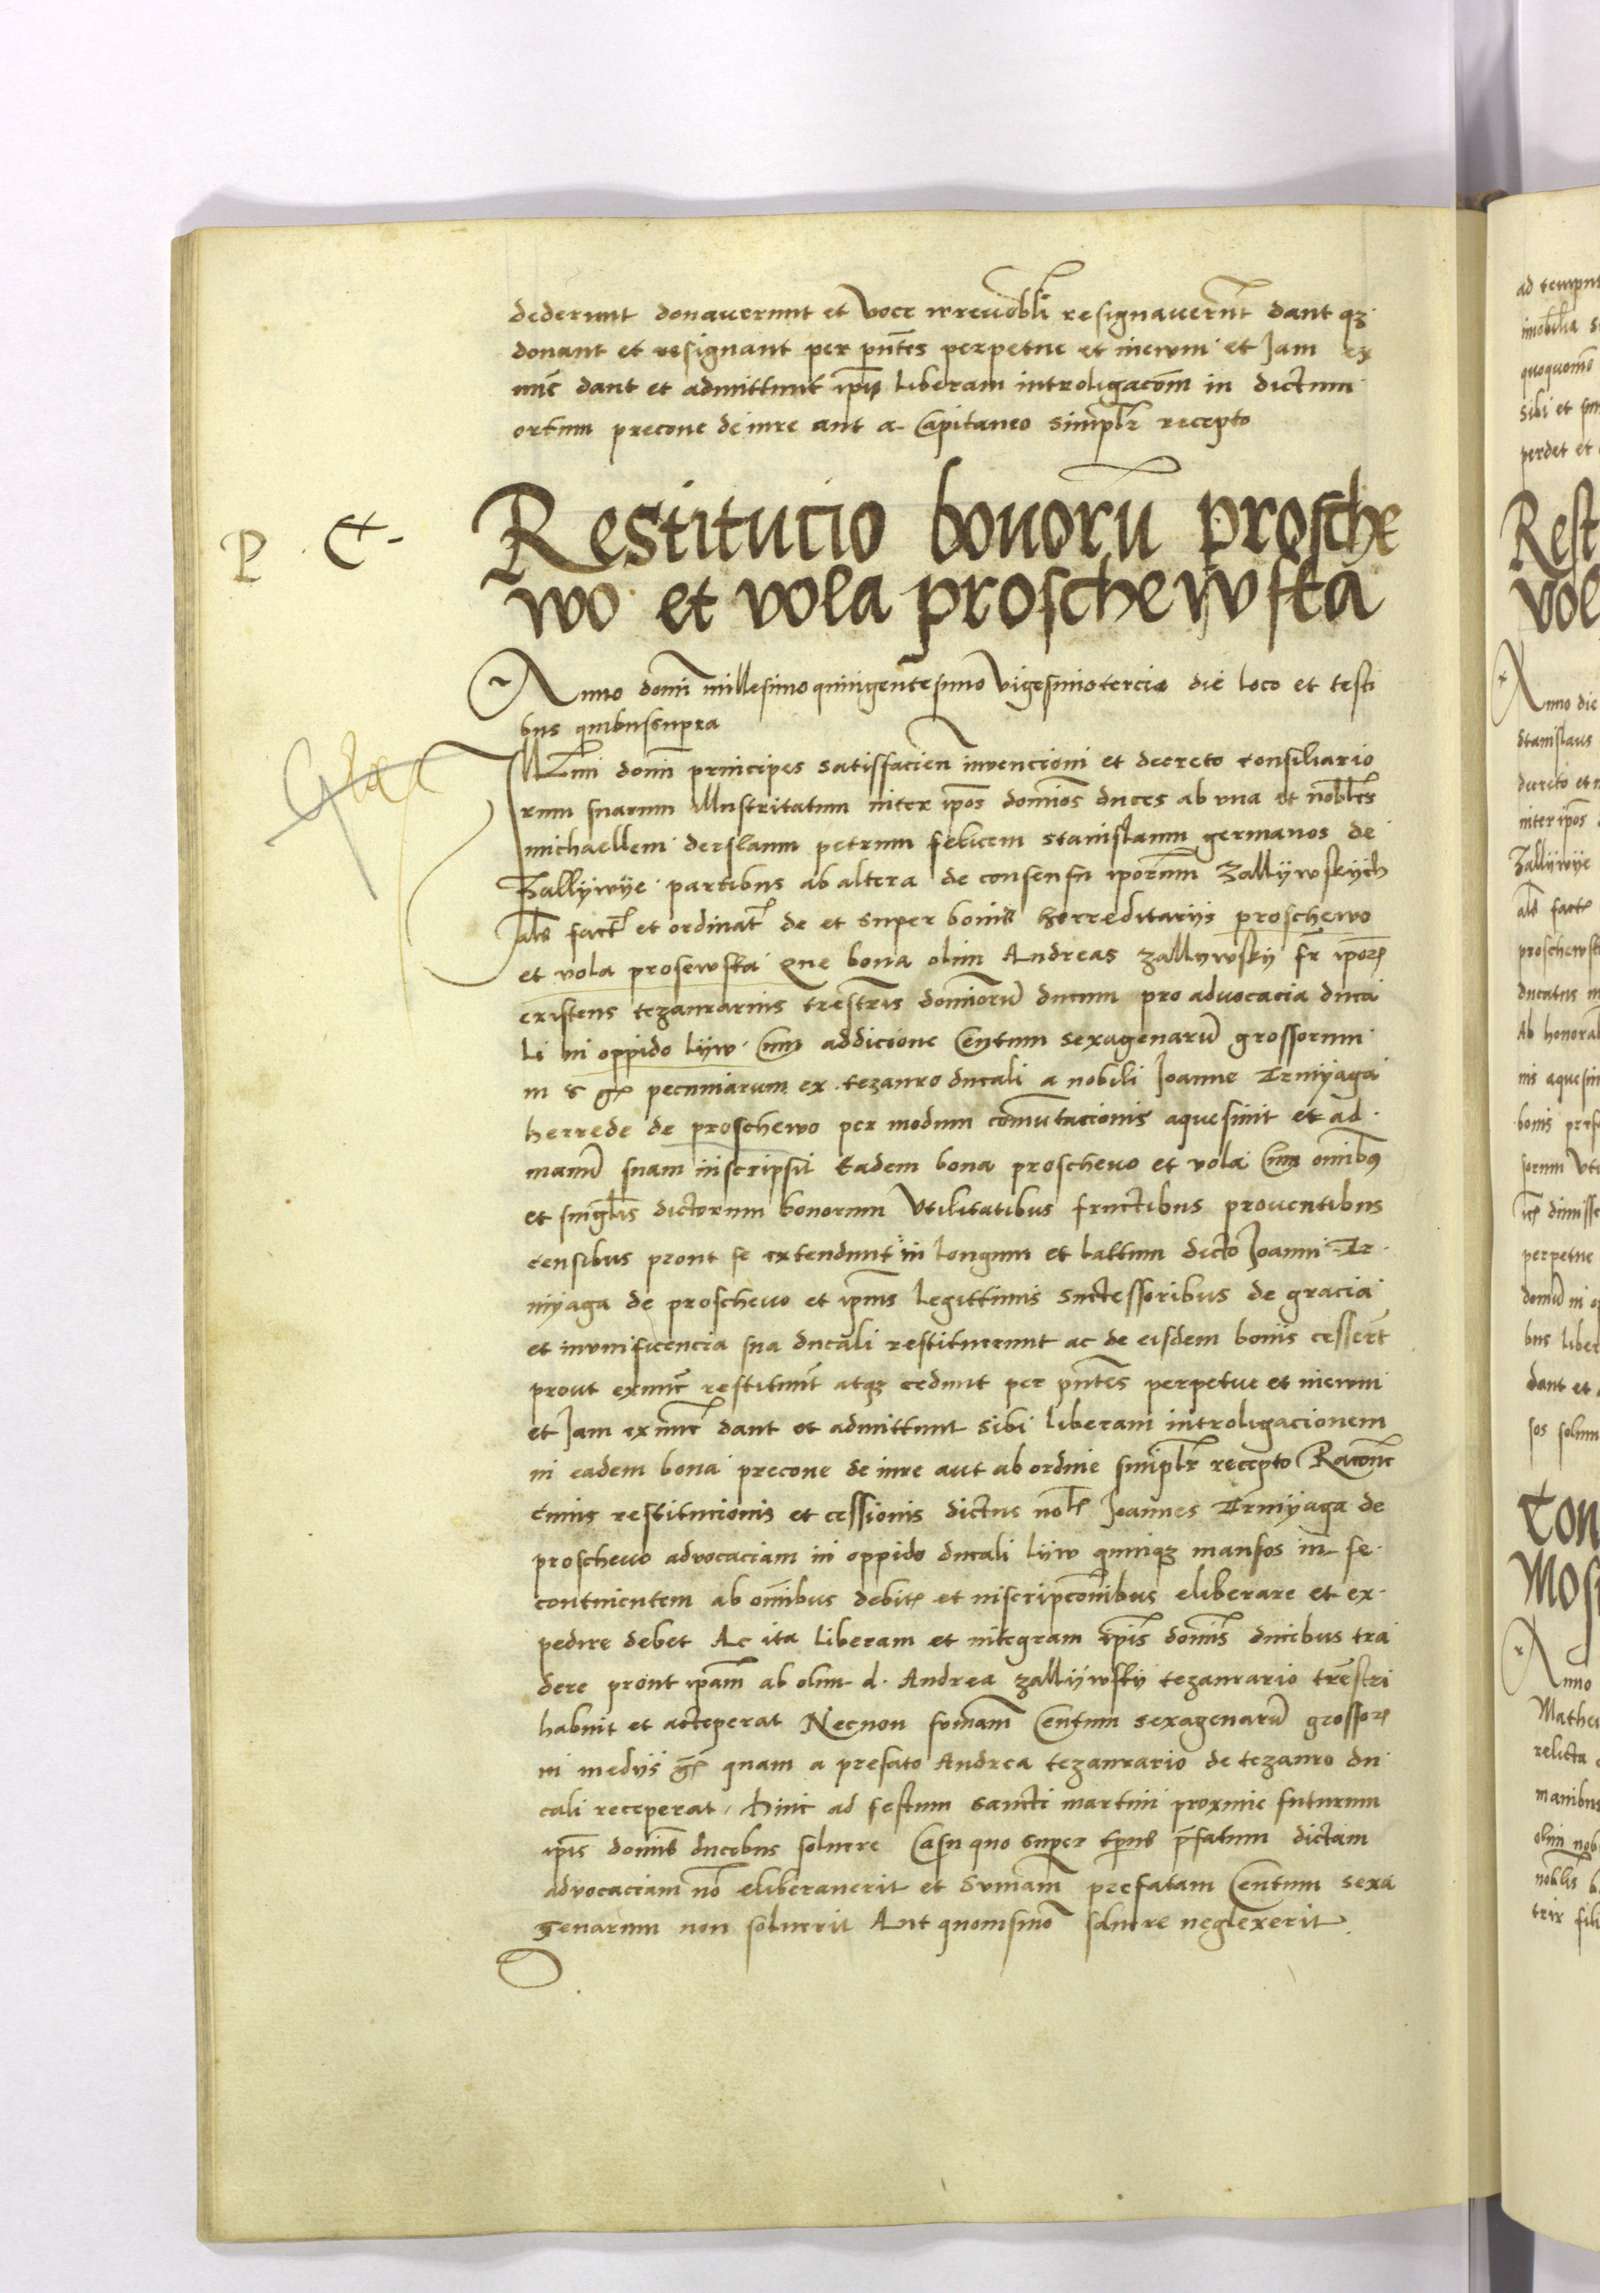 dederunt donaverunt et voce irrevobli resignaverunt dant qz
donant et resignant per pntes perpetue et inewm et Jam ex
nunc dant et admittunt ipis liberam introligacom in dictum
ortum precone de iure aut a Capitaneo simplr recepto
P Ct-
Restitucio bonoru prosche
wo et vola proschewska
Anno domi millesimo quingentesimo vigesimotercio die loco et testi
bus quibussupra
Illmi domi principes satisfacien invencioni et decreto consiliario
rum suarum illustritatum inter ipos dominos duces ab una et nobles
michaellem derslaum petrum felicem stanislaum germanos de
Zallywye partibus ab altera de consensu iporum Zallywskych
als fact et ordinat de et super bonis herreditarijs proschewo
et vola prosewska Que bona olim Andreas zallywsky fr ipor
existens tezaurarius trestris dominoru ducum pro advocacia duca
li in oppido lyw cum addicione Centum sexagenaru grossorum
in s gr pecuniarum ex tezauro ducali a nobili Joanne Irmyaga
herrede de proschewo per modum comutacionis aquesiuit et ad
manu suam inscripsit Eadem bona proschevo et vola cum omibus
et singlis dictorum bonorum Utilitatibus fructibus proventibus
censibus prout se extendunt in longum et lattum dicto Joanni Ir
myaga de proschevo et ipius legittimis successoribus de gracia
et munificencia sua ducali restituerunt ac de eisdem bonis cesserut
prout exnunc restituut atqz cedunt per pntes perpetue et inewm
et Jam exnunc dant et admittunt sibi liberam introligacionem
in eadem bona precone de iure aut ab ordine simplr recepto Racone
cuius restitucionis et cessionis dictus nobl Joannes Irmyaga de
proschevo advocaciam in oppido ducali lyw quinqz mansos in se
continentem ab omibus debit et inscripconibus eliberare et ex
pedire debet Ac ita liberam et integram ipis domis ducibus tra
dere prout ipam ab olim d. Andrea zallywsky tezaurario trestri
habuit et acceperat Necnon sumam Centum sexagenaru grossor
in medijs gr quam a prefato Andrea tezaurario de tezauro du
cali receperat hinc ad festum sancti martini proxime futurum
ipis domis ducibus soluere Casu quo super tpus pfatum dictam
advocaciam no eliberaverit et Sumam prefatam Centum sexa
genarum non soluerit Aut quomsmo soluere neglexerit